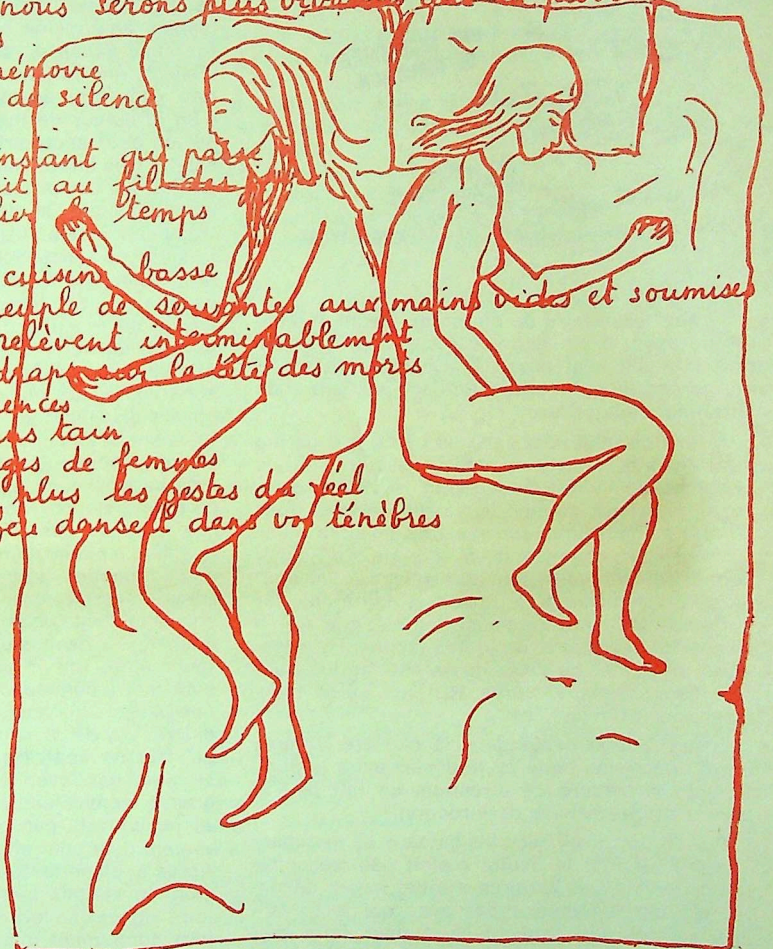 nous serons plus
s
émoire
de silence
instant qui passe
it au fil des
lier le temps
cuisine basse
euple de servantes aux mains vides et soumises
relèvent interminablement
draps sur la tête des morts
ences
ns tain
ges de femmes
plus les gestes du réel
feu dansent dans vos ténèbres